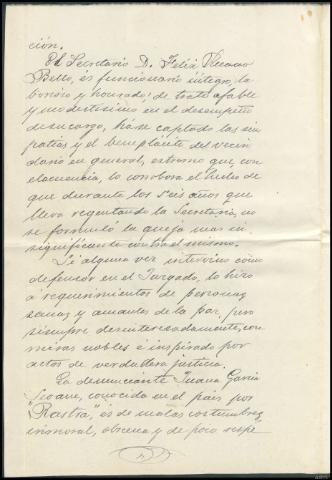 ción.
El Secretario D. Felix Recarey
Bello, és funcionario íntegro, la
borioso y honrado; de trato afable
y modestisimo en el desempeño
de su cargo, háse captado las sim
patias y el beneplácito del vecin
dario en general, extremo que, con
elocuencia, lo corrobora el hecho de
que durante los seis años que
lleva regentando la Secretaría, no
se formuló la queja más in
significante contra el mismo.
Si alguna vez intervino como
defensor en el Juzgado, lo hizo
a requerimientos de personas
sanas y amantes de la paz, pero
siempre desinteresadamente, con
miras nobles é inspirado por
actos de verdadera justicia.
La denunciante Juana García
Seoane, conocida en el país por
"Rastra", és de malas costumbres,
inmoral, obscena y de poco respe